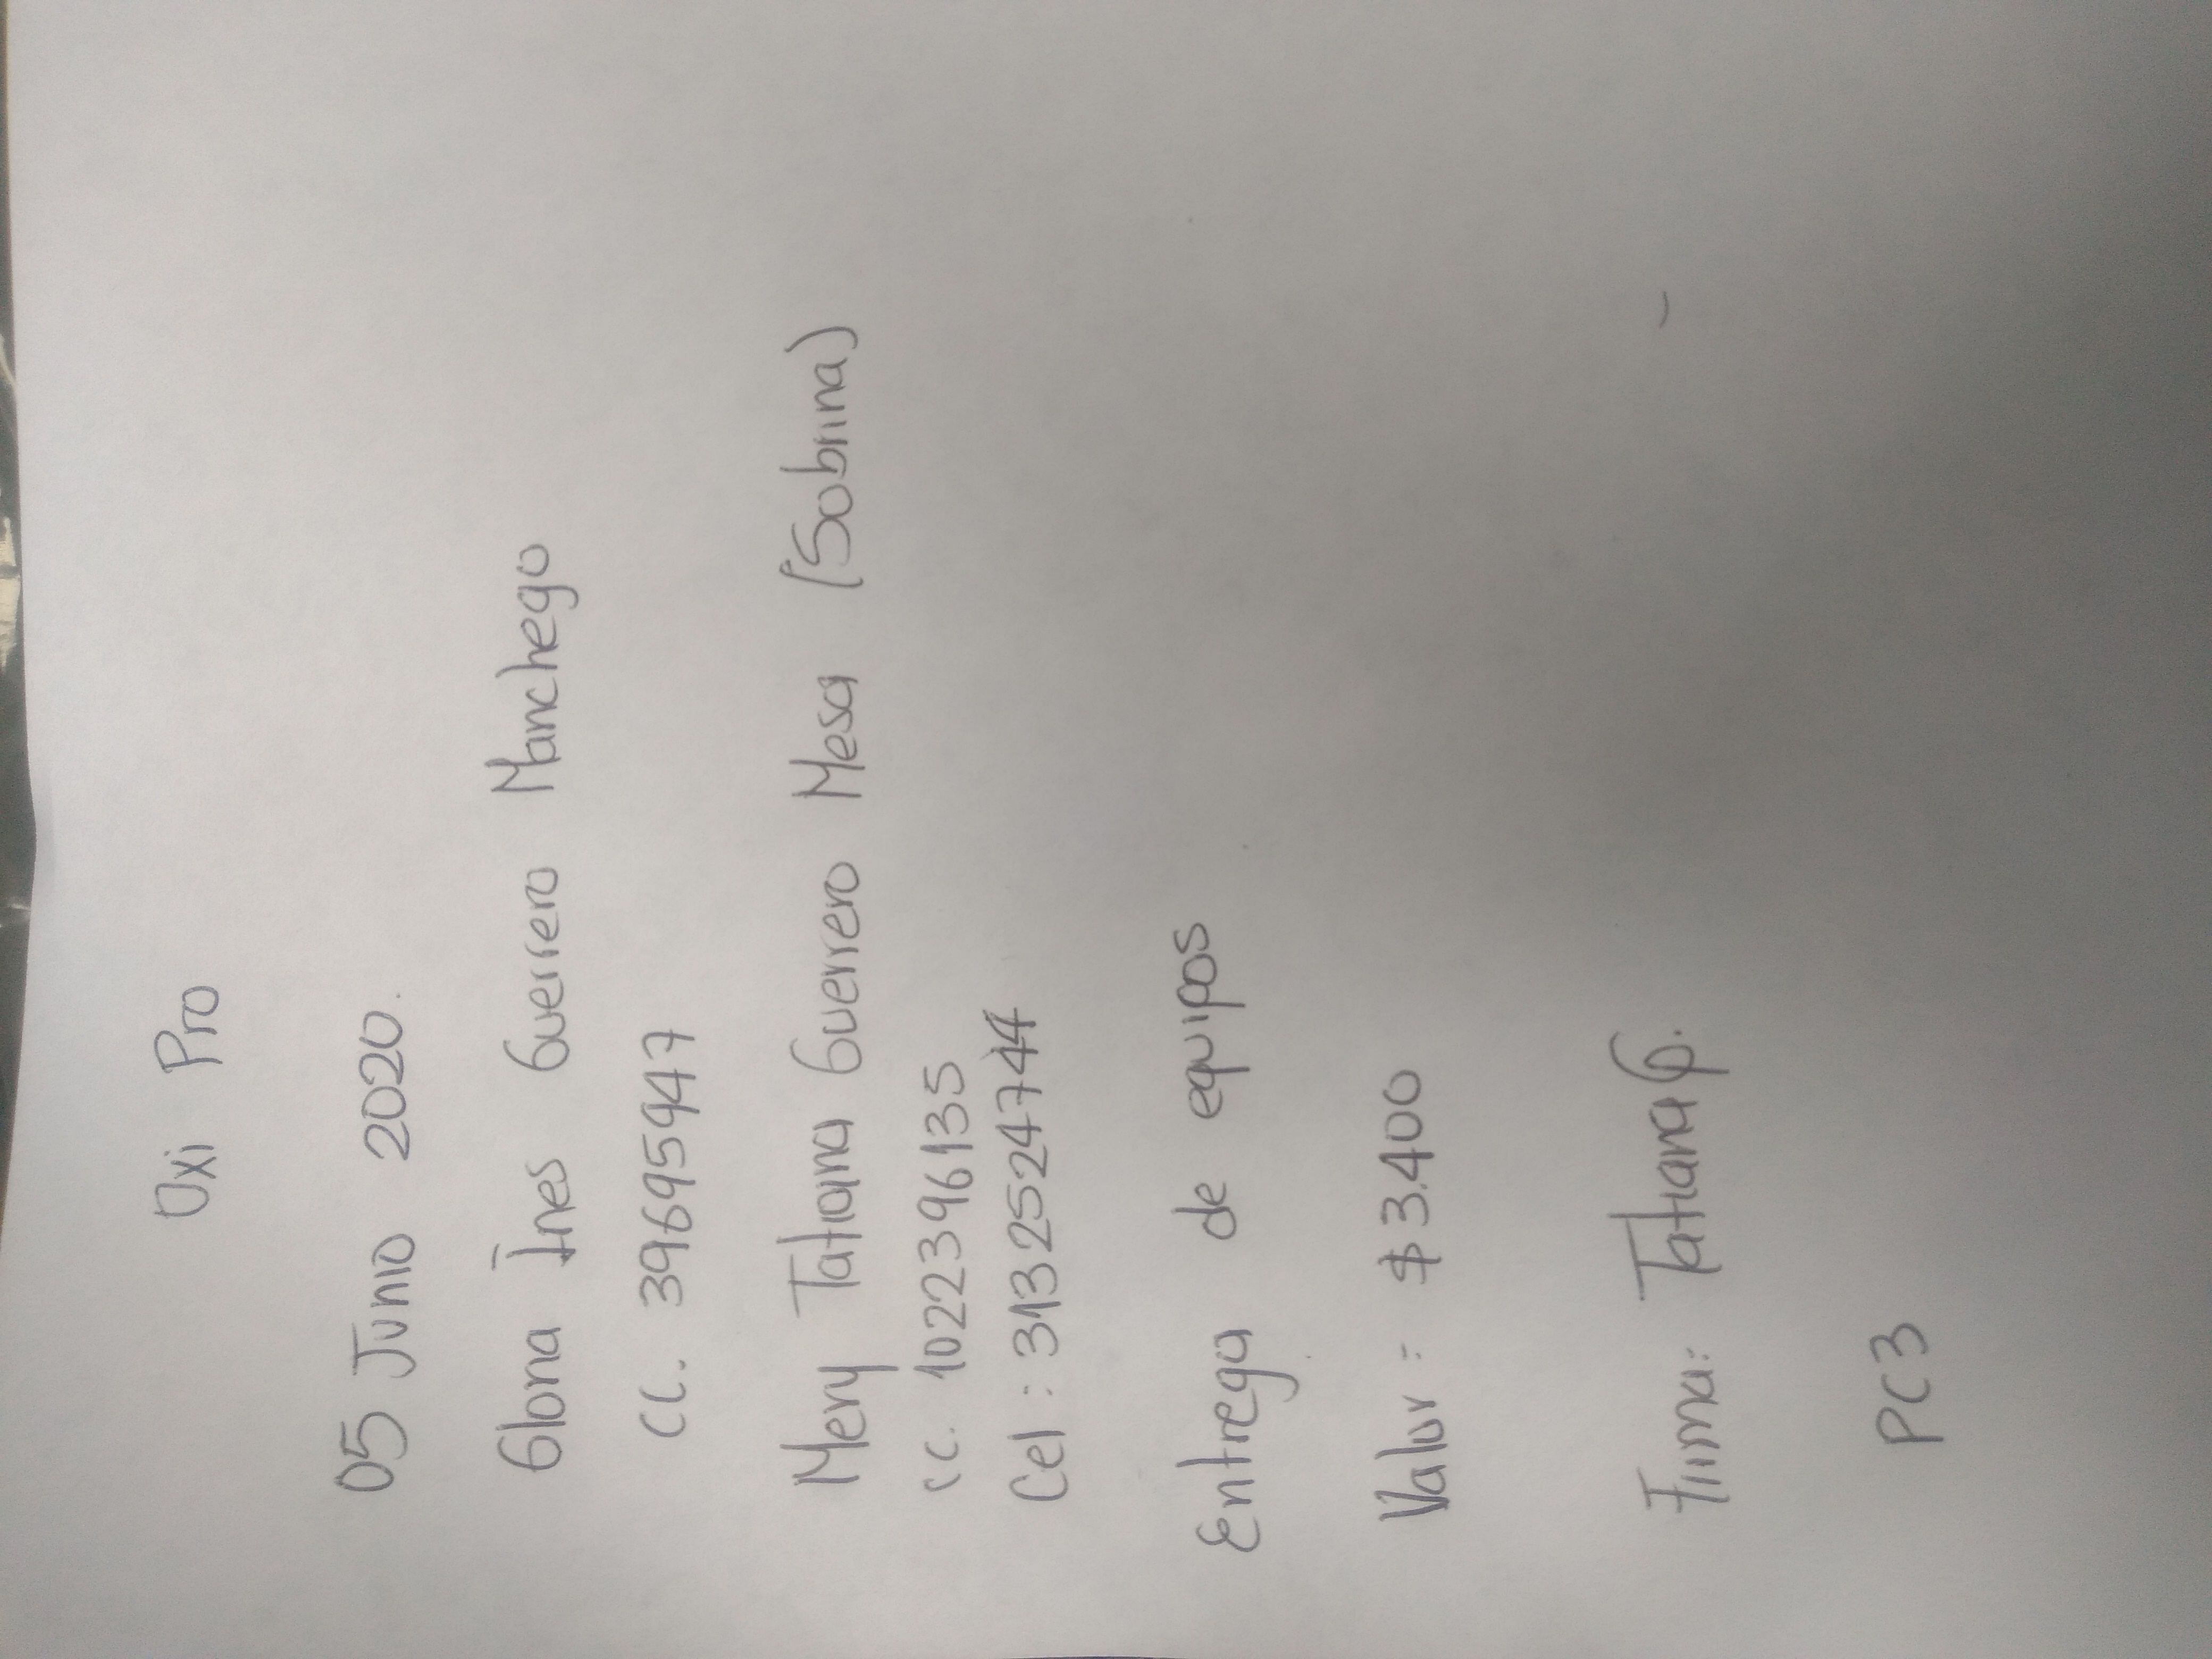 Oxi Pro
05 Junio 2020.
Gloria Ines Guerrero Manchego
CC. 39695947
Mery Tatiana Guerrero Mesa (Sobrina)
CC. 1022396135
Cel: 3132524744
Entrega de equipos
Valor = $3.400
Firma: Tatiana G.
PC3